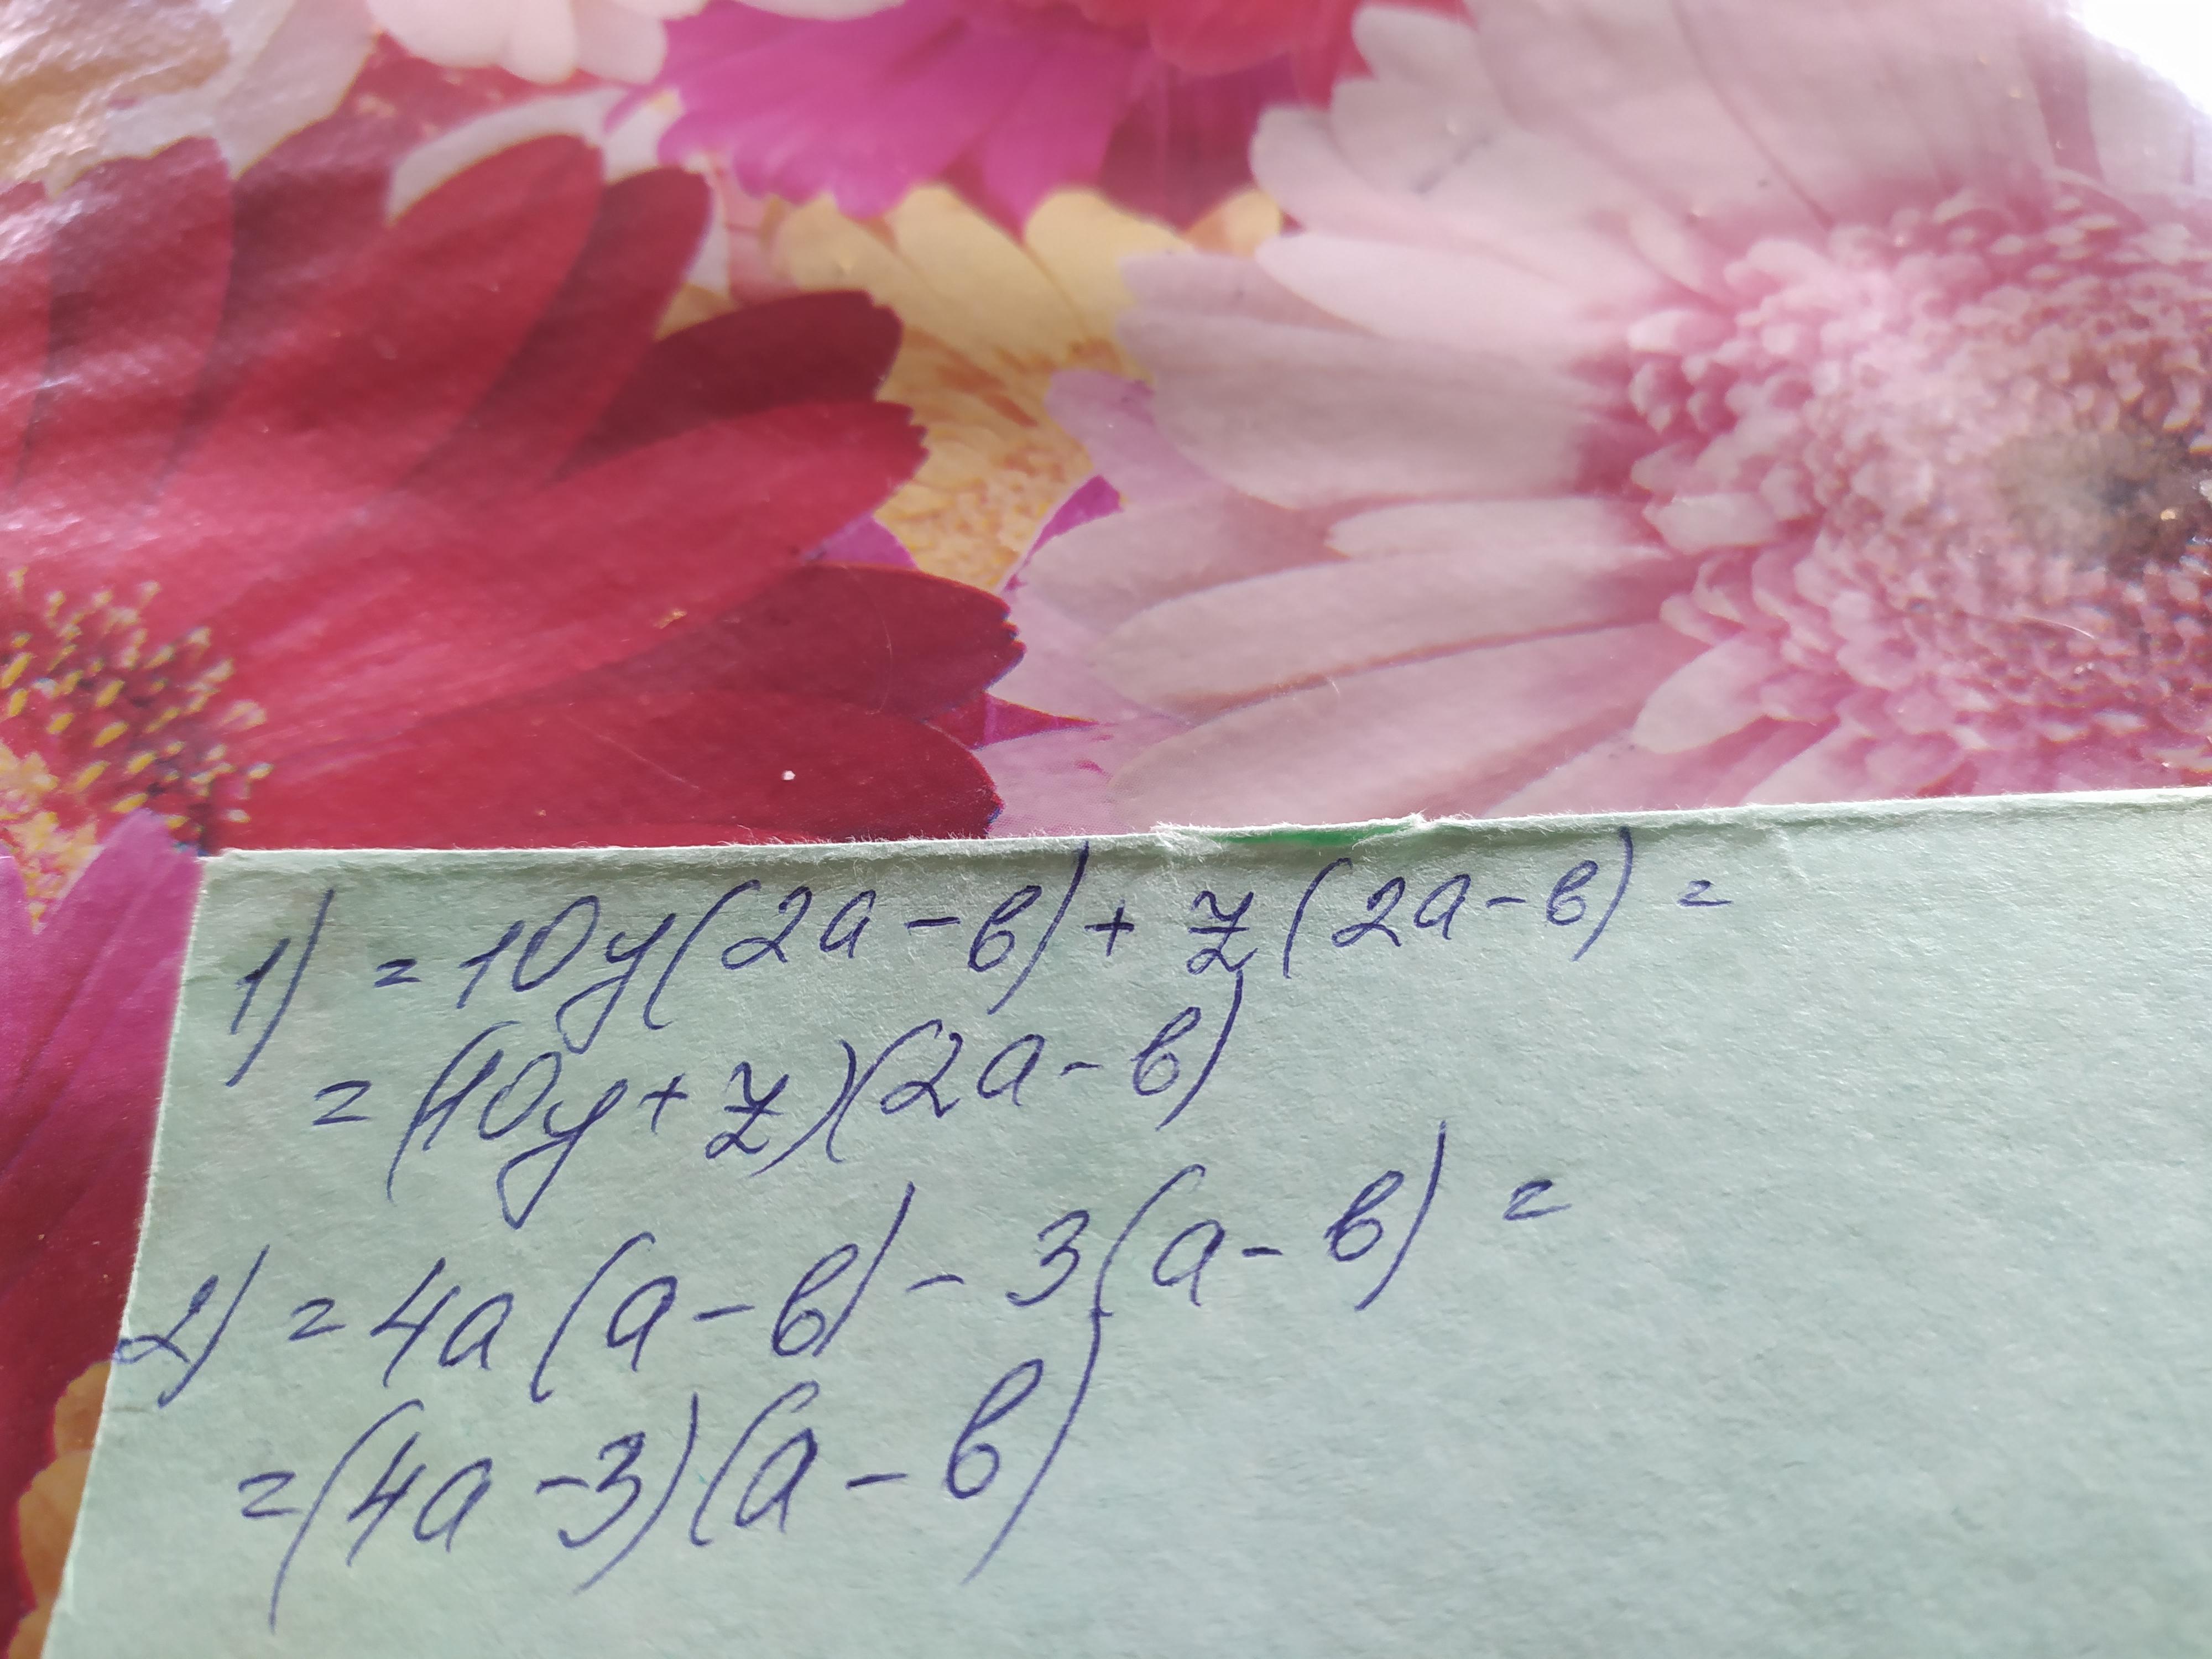 1) = 10y(2a - b) + z(2a - b) =
= (10y + z)(2a - b)
2) = 4a(a - b) - 3(a - b) =
= (4a - 3)(a - b)